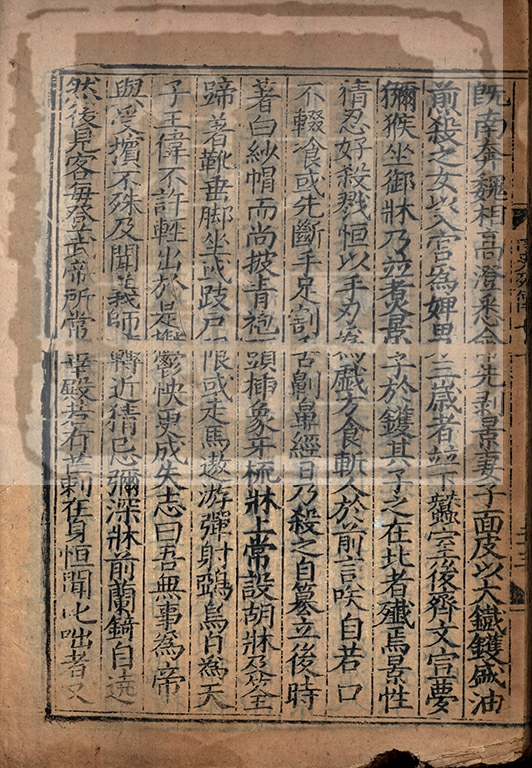 既南奔魏相高澄悉命先剥景妻子面皮以大鐵鑊盛油
煎殺之女以入宮為婢男三歲者並下蠶室後齊文宣夢
獼猴坐御牀乃並煮景子於鑊其子之在北者殲焉景性
猜忍好殺戮恒以手刃為戲方食斬人於前言咲自若口
不輟食或先斷手足割舌劓鼻經日乃殺之自篡立後時
著白紗帽而尚披青袍頭揷象牙梳牀上常設胡牀及筌
蹄著靴垂脚坐或跂户限或走馬遨游彈射鵶鳥自為天
子王偉不許輕出於是鬱怏更成失志曰吾無事為帝
與受擯不殊及聞義師轉近猜忌彌深牀前蘭錡自遶
然後見客每登武帝所常 殿若有芒刺在身恒聞叱咄者又